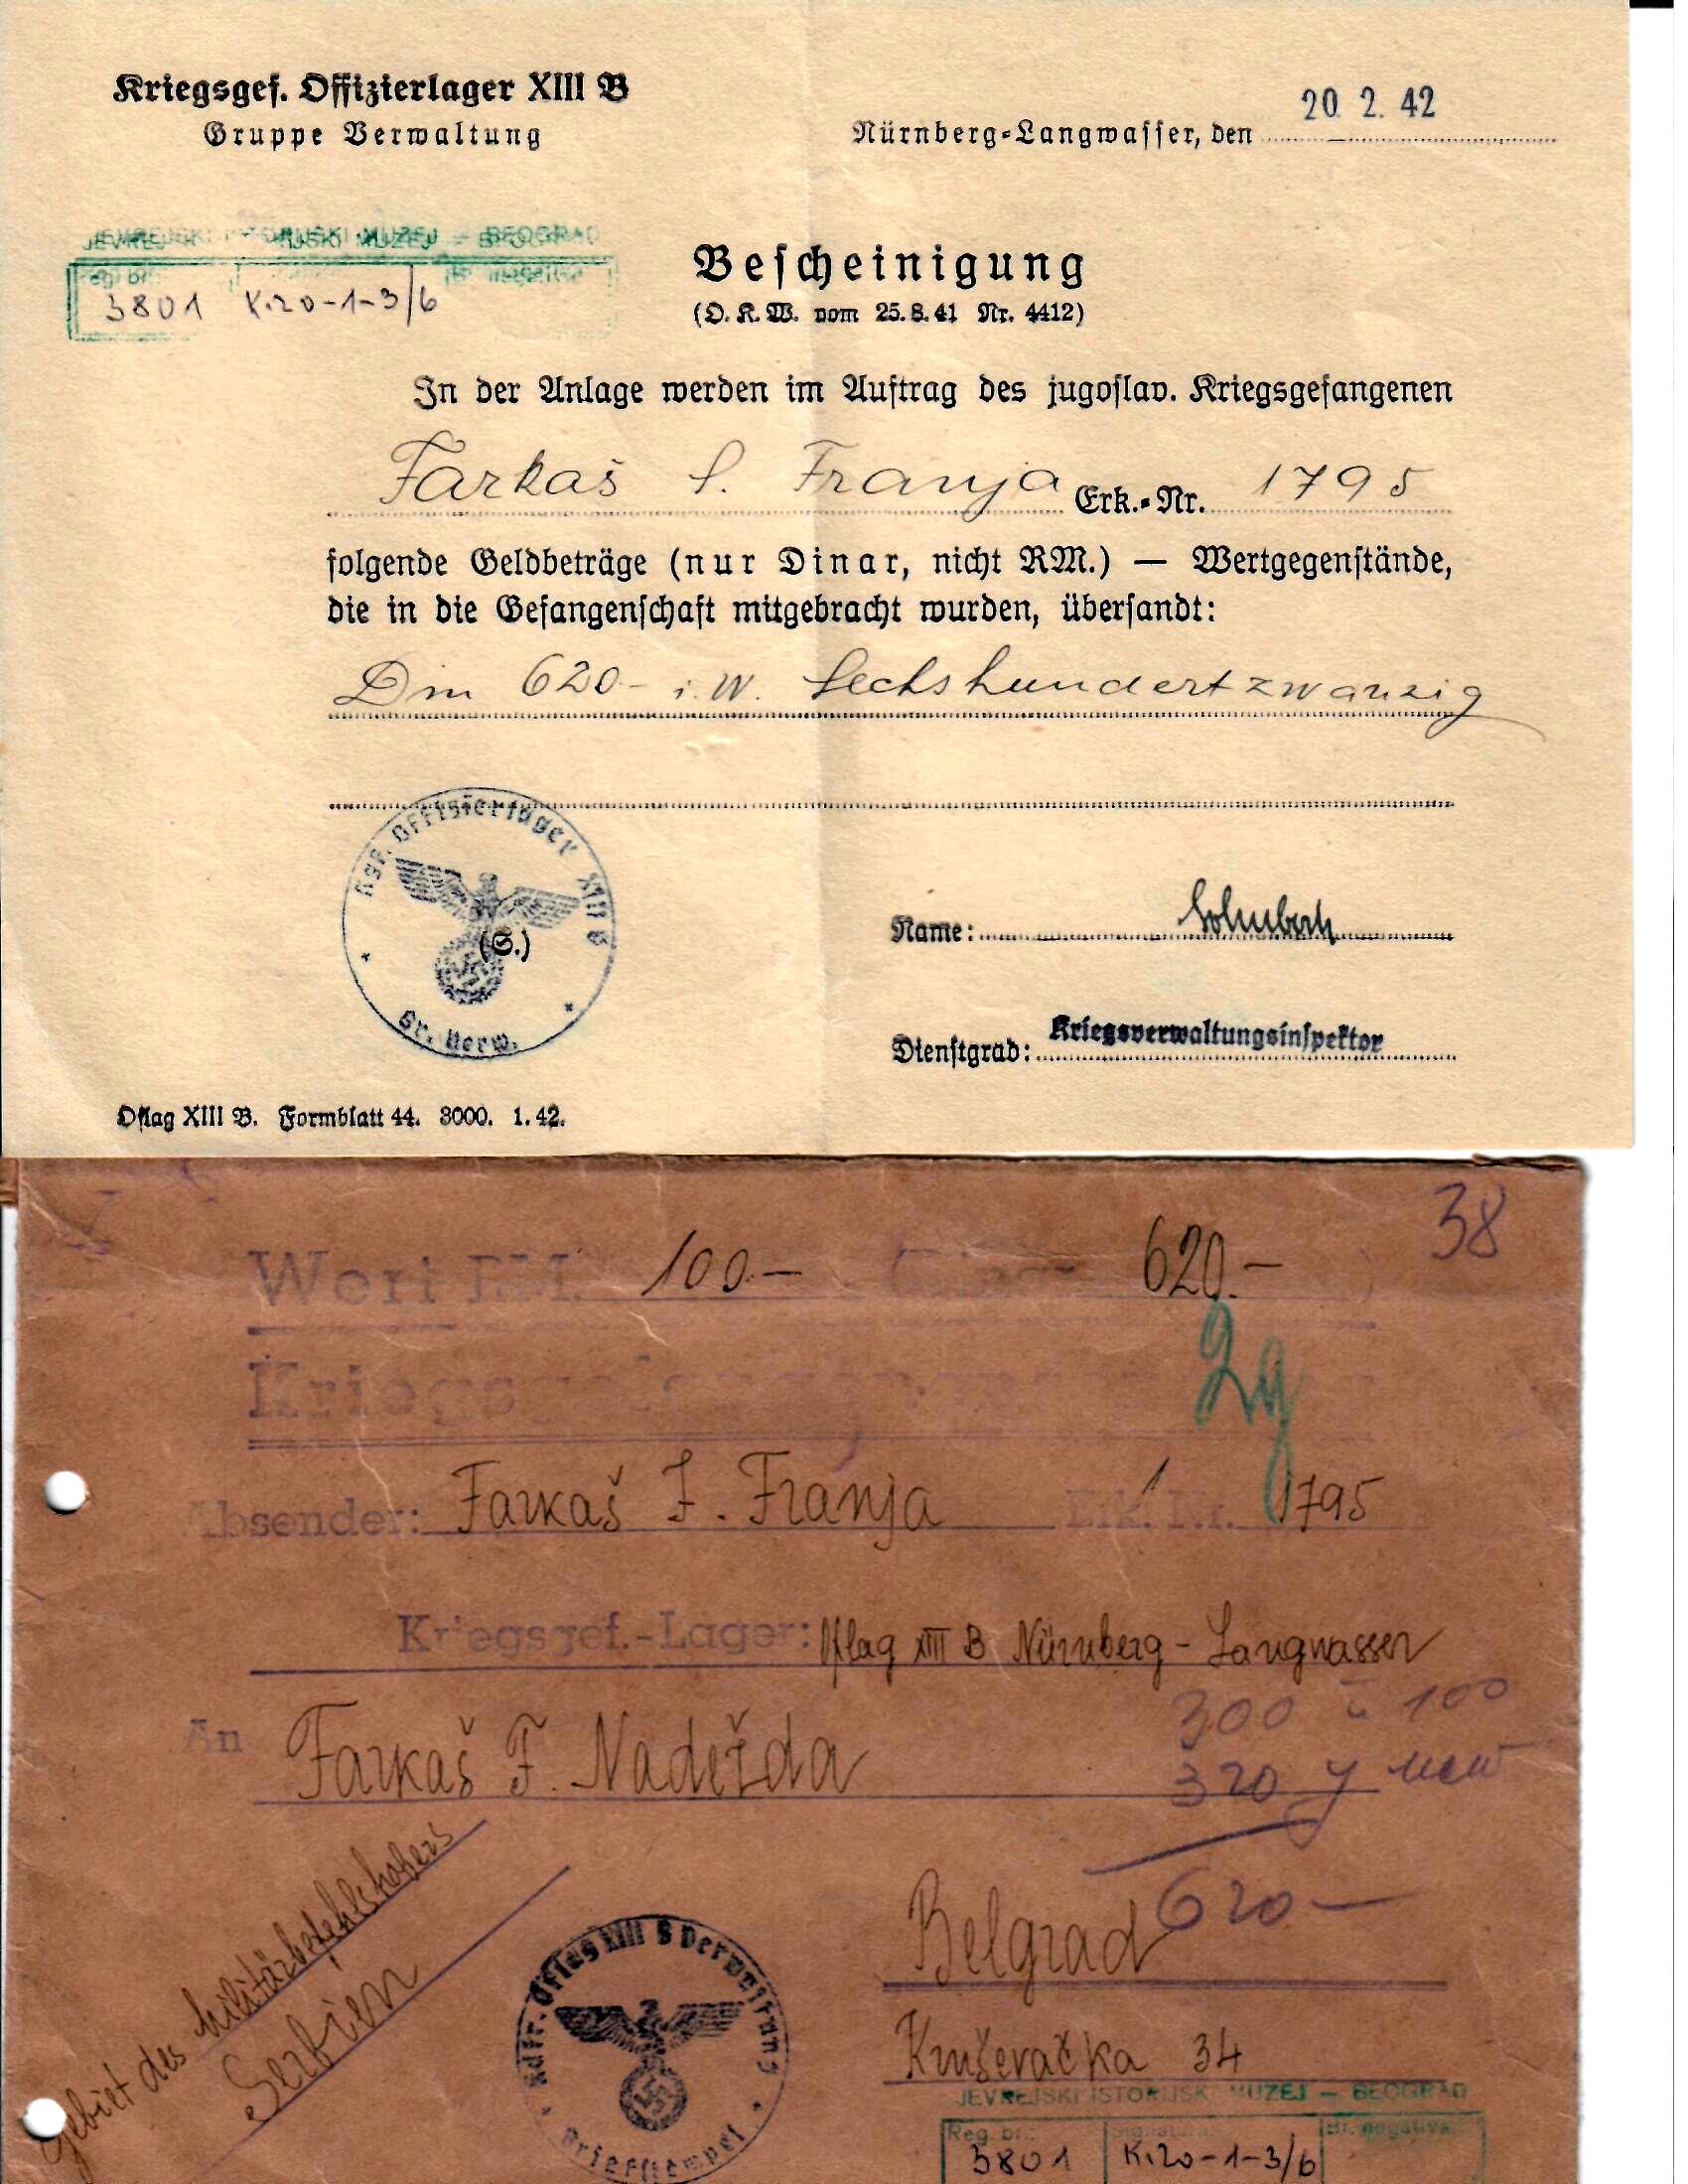 Kriegsgef. Offizierlager XIII B
Gruppe Verwaltung
Nürnberg-Langwasser, den 20. 2. 42
JEVREJSKI ISTORIJSKI MUZEJ – BEOGRAD
Reg. br.
3801 K.20-1-3/6
Bescheinigung
(O. K. W. vom 25. 8. 41 Nr. 4412)
In der Anlage werden im Auftrag des jugoslav. Kriegsgefangenen
Farkaš Franja Erk.-Nr. 1795
folgende Geldbeträge (nur Dinar, nicht RM.) — Wertgegenstände,
die in die Gefangenschaft mitgebracht wurden, übersandt:
Din 620.- i. W. Sechshundertzwanzig
Kgf. Offizierlager XIII B
(S.)
Gr. Verw.
Name:
Dienstgrad: Kriegsverwaltungsinspektor
Oflag XIII B. Formblatt 44. 3000. 1. 42.
38
Wert RM. 100.— 620.—
Absender: Farkaš F. Franja Erk. Nr. 1795
Kriegsgef.-Lager: Oflag XIII B Nürnberg - Langwasser
300 100
An Farkaš F. Nadežda
320
620 —
Belgrad
Kruševačka 34
Gebiet des Militärbefehlshabers
Serbien
Oflag XIII B Verwaltung
Briefstempel
JEVREJSKI ISTORIJSKI MUZEJ – BEOGRAD
Reg. br. Signatura Br. negativa
3801 K.20-1-3/6